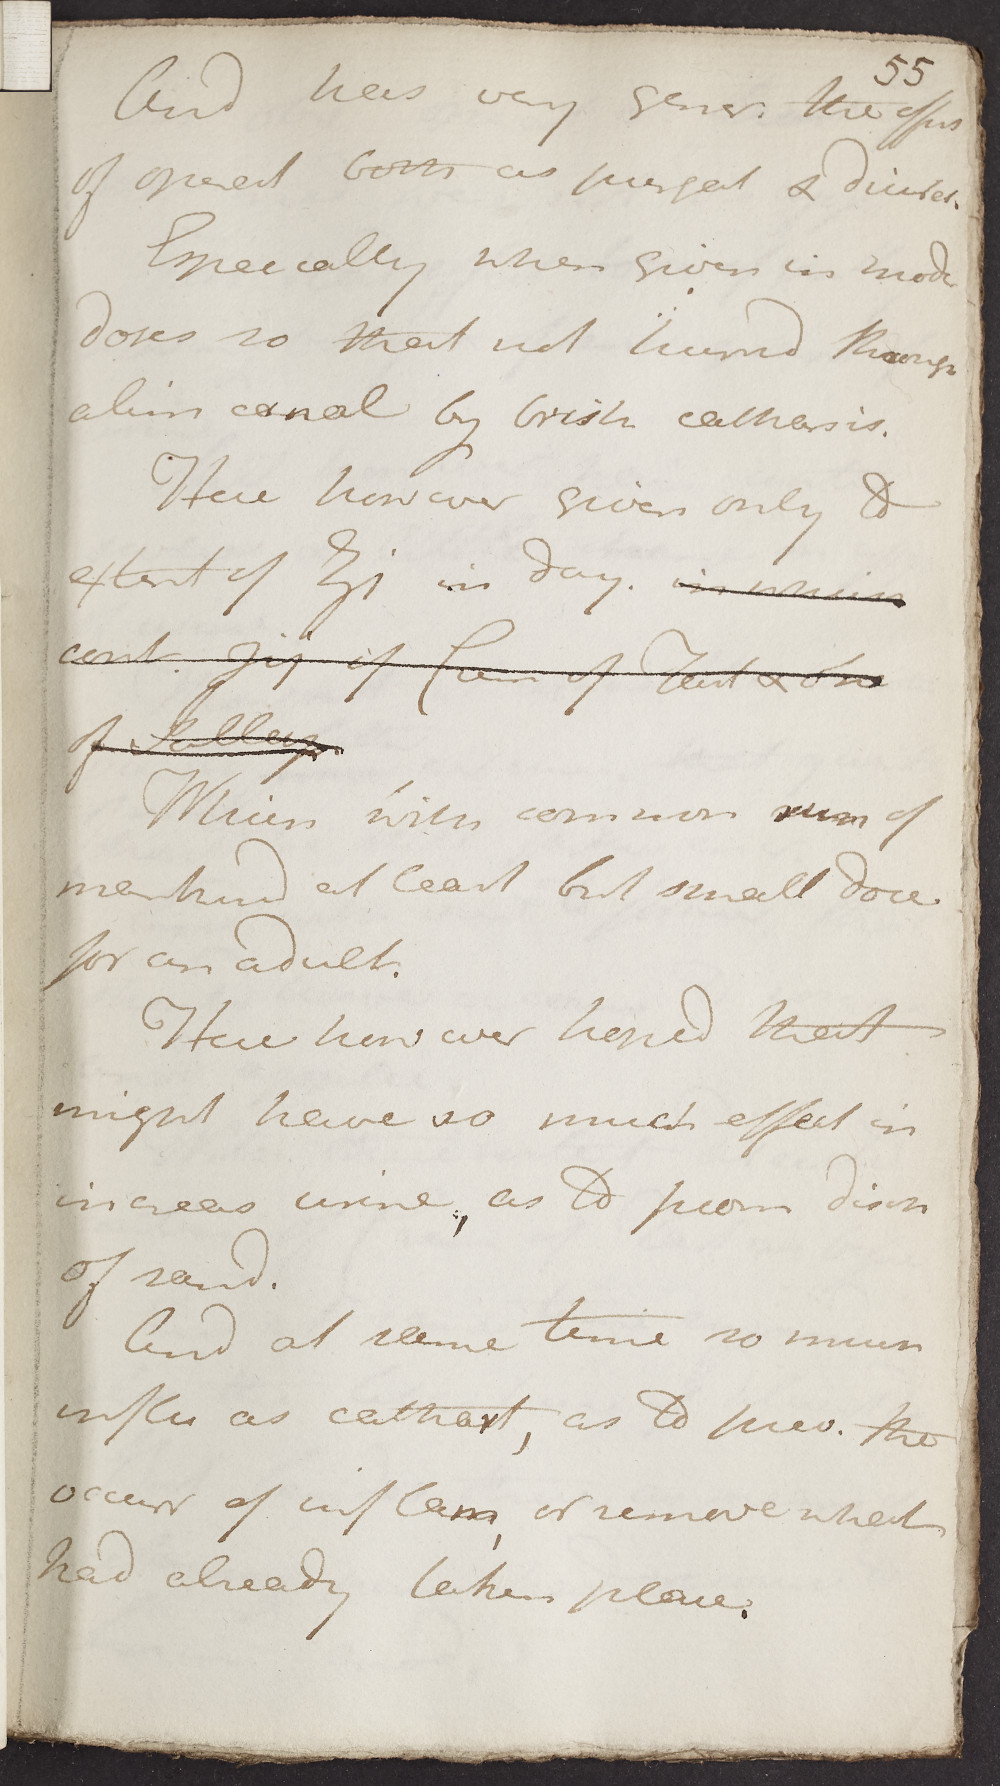 55
And has very gener. the effec
of operat both as purgat & diuret.
Especially when given in mode
doses so that not hurrid through
alim canal by brisk catharsis.
Here however given only to
extent of ʒj in day. in which
cont. ℈ij of Crem of Tart & on
of Jallap.
Which with common run of
mankind at least but small dose
for an adult.
Here however hoped that
might have so much effect in
increas urine, as to prom disch
of sand.
And at same time so much
influ as cathart, as to prev. the
occurr of inflam, or remove what
had already taken place.